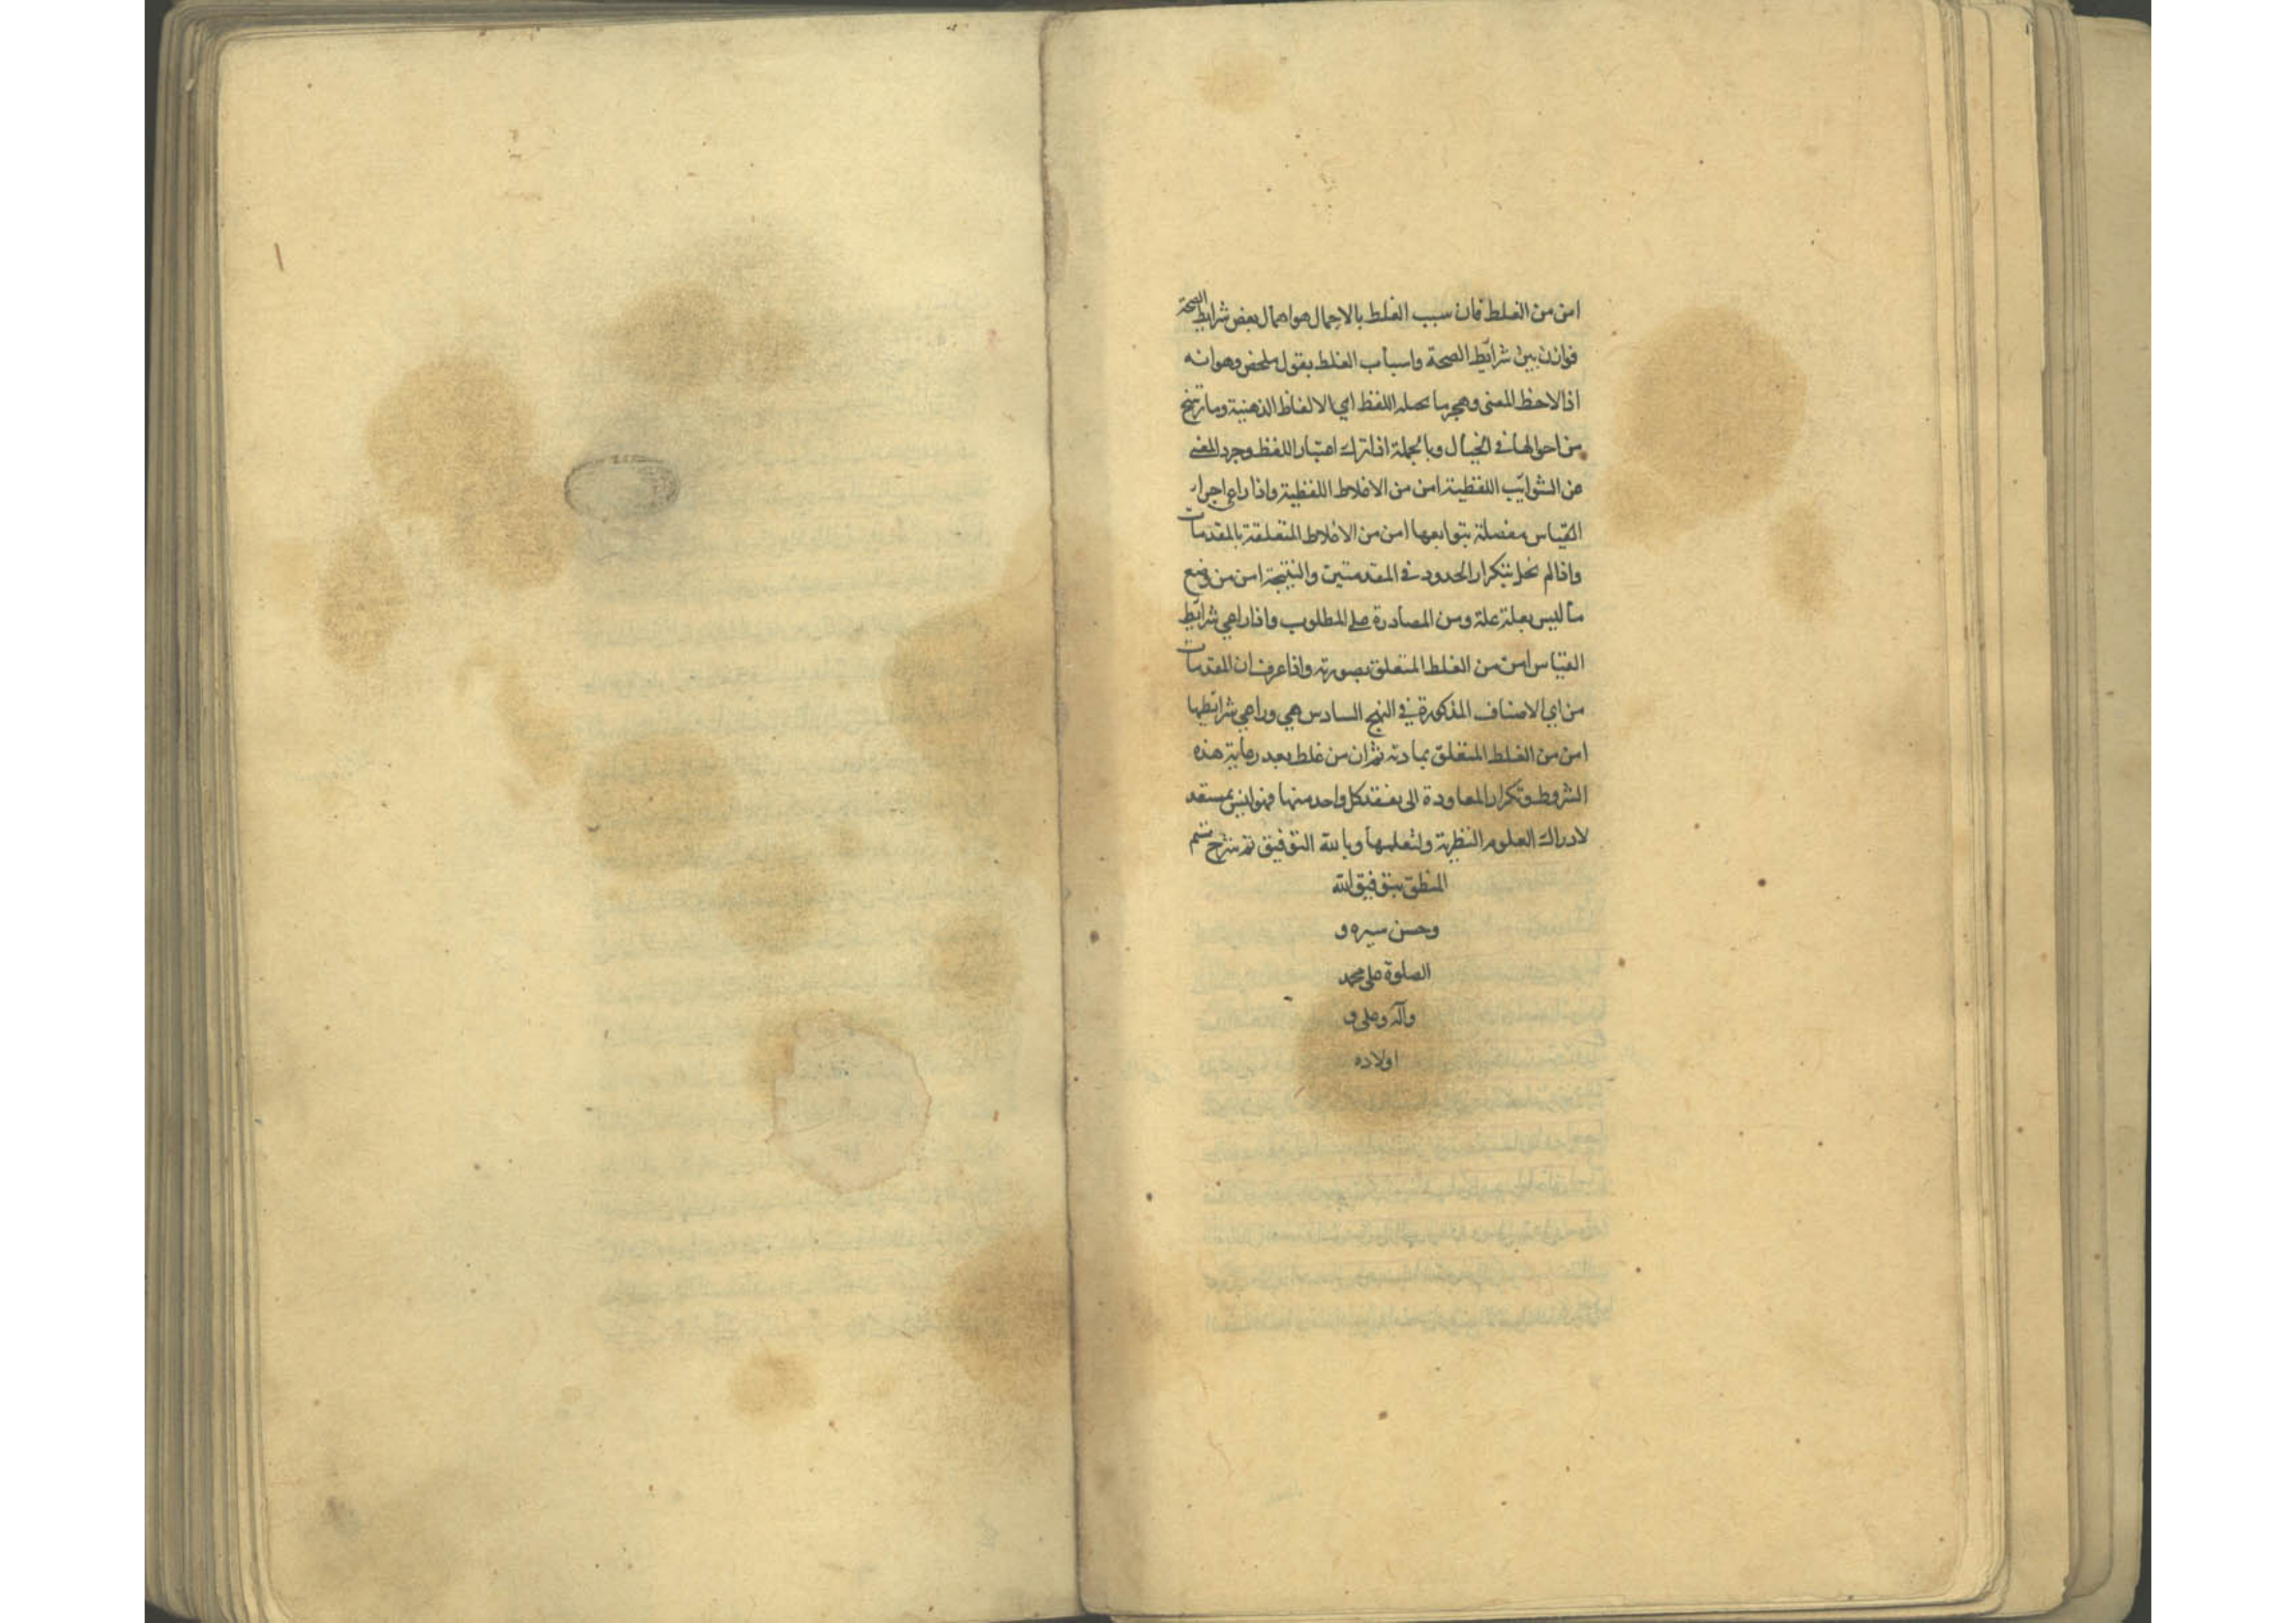 امن من الغلط فان سبب الغلط بالاجمال هو اهمال بعض شرايط الصحة
فوازن بين شرائط الصحة واسباب الغلط بقول ملخص وهو انه
اذا لاحظ المعنى وهجر ما يحمله اللفظ اي الالفاظ الذهنية وما يرتسخ
من احوالها في الخيال وبالجملة اذا ترك اعتبار اللفظ وجرد المعنى
عن الشوائب اللفظية امن من الاغلاط اللفظية واذا راعى اجزاء
القياس مفصلة بتوابعها امن من الاغلاط المتعلقة بالمقدمات
واذا لم يخل بتكرار الحدود في المقدمتين والنتيجة امن من وضع
ما ليس بعلة علة ومن المصادرة على المطلوب واذا راعى شرائط
القياس امن من الغلط المتعلق بصورته واذا عرف ان المقدمات
من اي الاصناف المذكورة في النهج السادس هي وراعى شرائطها
امن من الغلط المتعلق بمادته ثم ان من غلط بعد رعاية هذه
الشروط وتكرار المعاودة الى تفقد كل واحد منها فهو ليس بمستعد
لادراك العلوم النظرية ولتعلمها وبالله التوفيق تم شرح قسم
المنطق بتوفيق الله
وحسن سيره و
الصلوة على محمد
وآله وعلى و
اولاده